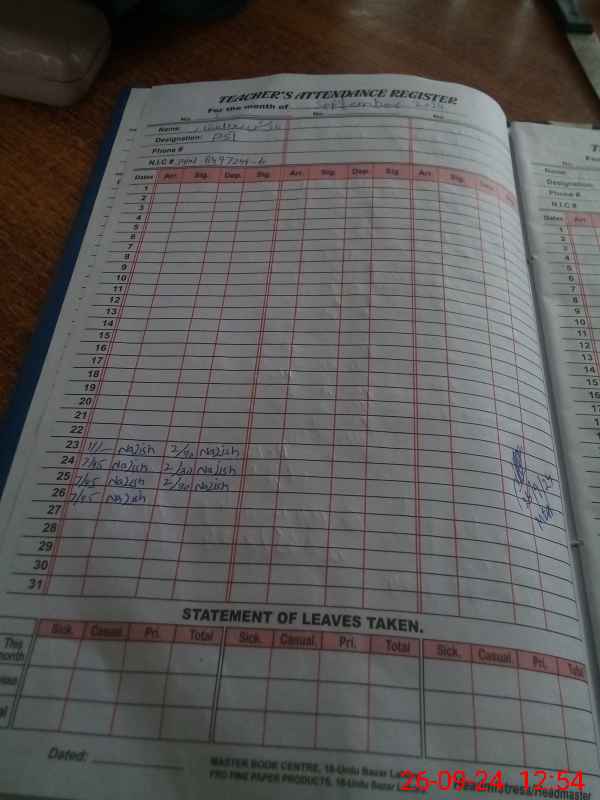 TEACHER'S ATTENDANCE REGISTER
For the month of September
No. No. No.
Name:
Designation: PST
Phone #
N.I.C #
Dates Arr. Sig. Dep. Sig. Arr. Sig. Dep. Sig. Arr. Sig. Dep.
1
2
3
4
5
6
7
8
9
10
11
12
13
14
15
16
17
18
19
20
21
22
23 Nazish 2/30 Nazish
24 7/45 Nazish 2/30 Nazish
25 7/45 Nazish 2/30 Nazish
26 7/45 Nazish
27
28
29
30
31
STATEMENT OF LEAVES TAKEN.
Sick. Casual. Pri. Total Sick. Casual. Pri. Total Sick. Casual. Pri. Total
This month
Dated:
MASTER BOOK CENTRE, 16-Urdu Bazar
PRO FINE PAPER PRODUCTS, 16-Urdu Bazar
Headmistress/Headmaster
26-09-24, 12:54
No.
Name:
Designation:
Phone #
N.I.C #
Dates Arr.
1
2
3
4
5
6
7
8
9
10
11
12
13
14
15
16
17
18
19
20
21
22
23
24